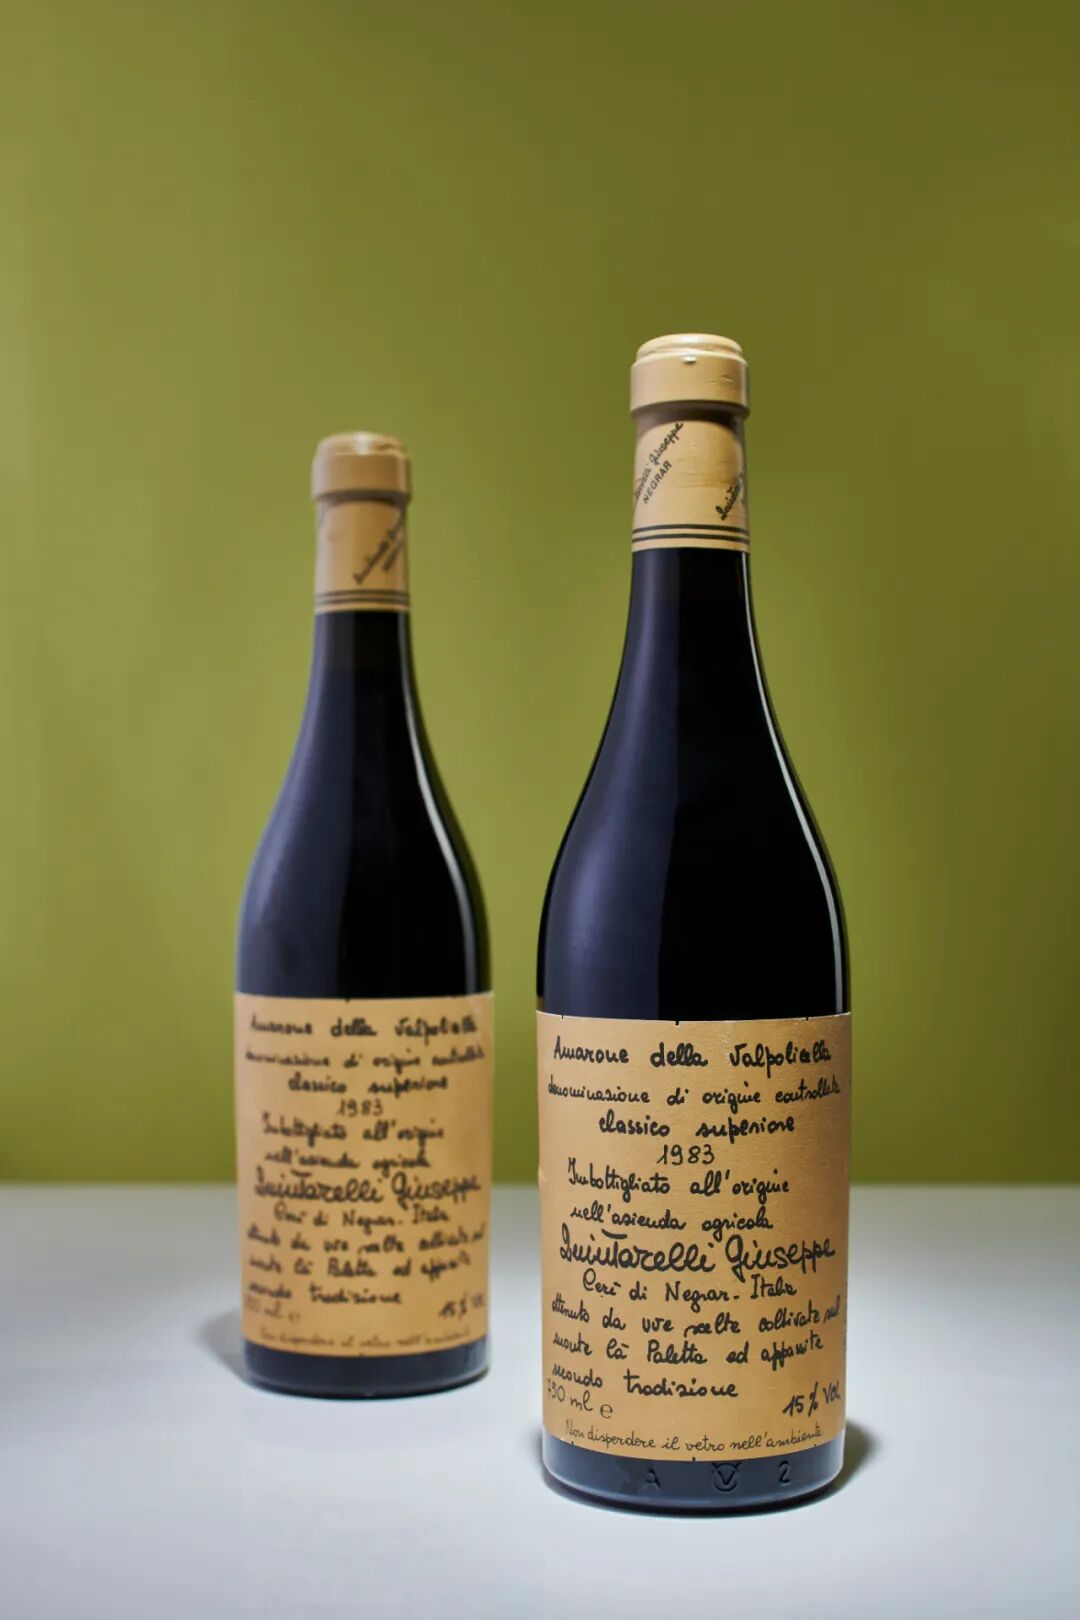 Giuseppe
NEGRAR
Amarone della Valpolicella
denominazione di origine controllata
classico superiore
1983
Imbottigliato all'origine
nell'azienda agricola
QuinTarelli Giuseppe
Cerè di Negrar - Italia
ottenuto da uve scelte coltivate sul
monte Cà Paletta ed appassite
secondo tradizione
750 ml e
15% Vol.
Non disperdere il vetro nell'ambiente
A V 2
Amarone della Valpolicella
denominazione di origine controllata
classico superiore
1983
Imbottigliato all'origine
nell'azienda agricola
QuinTarelli Giuseppe
Cerè di Negrar - Italia
da uve scelte coltivate sul
monte Cà Paletta ed appassite
secondo tradizione
750 ml e
15% Vol.
Non disperdere il vetro nell'ambiente